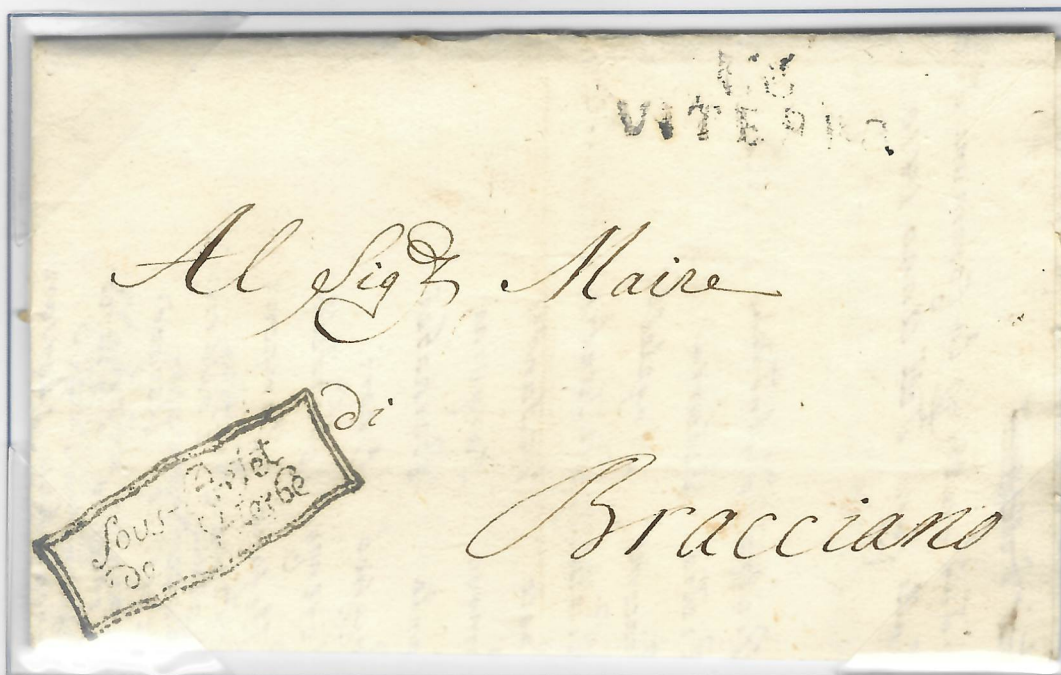 VITERBO
Al Sigr Maire
di
Bracciano
Sous-Préfet
de Viterbe